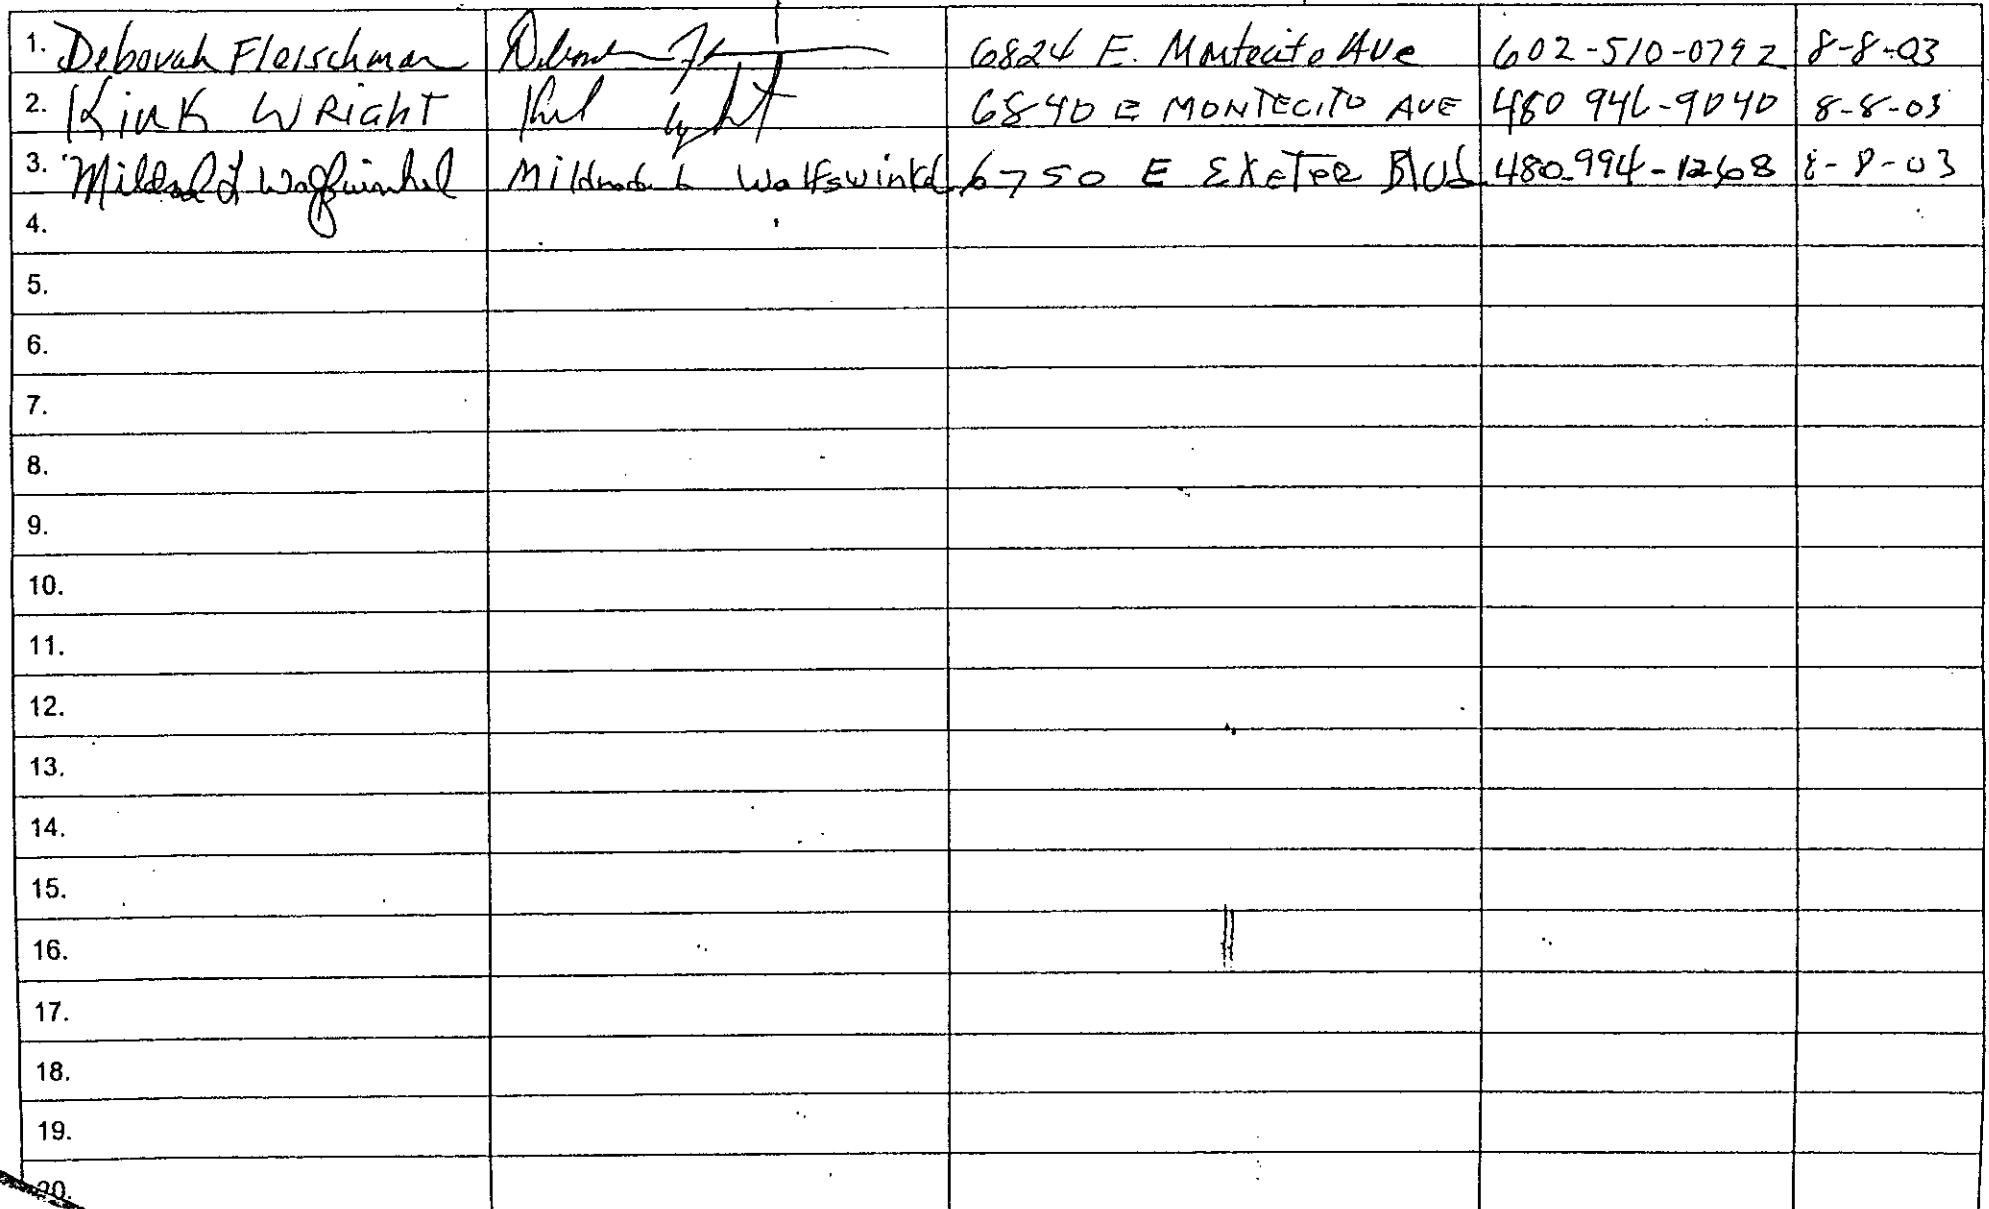 1. Deborah Fleischman 6824 E. Montecito Ave 602-510-0792 8-8-03
2. Kirk WRight 6840 E MONTECITO AVE 480 946-9040 8-8-03
3. Mildred L Wolfswinkel Mildred L Wolfswinkel 6750 E EXETER Blvd 480 994-1268 8-8-03
4.
5.
6.
7.
8.
9.
10.
11.
12.
13.
14.
15.
16.
17.
18.
19.
20.